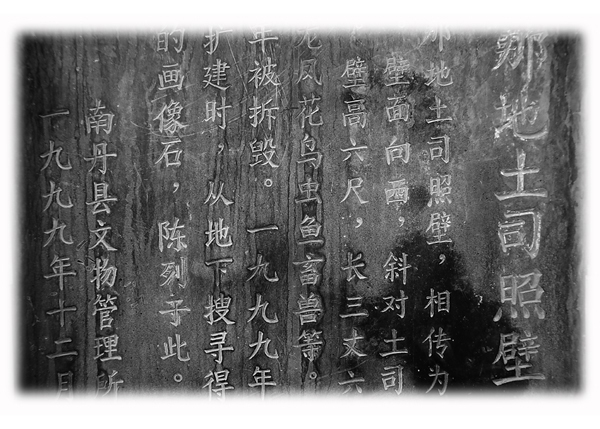 那地土司照壁
那地土司照壁，相传为
壁面向西，斜对土司
壁高六尺，长三丈六
龙凤花鸟虫鱼畜兽等。
年被拆毁。一九九九年
扩建时，从地下搜寻得
的画像石，陈列于此。
南丹县文物管理所
一九九九年十二月